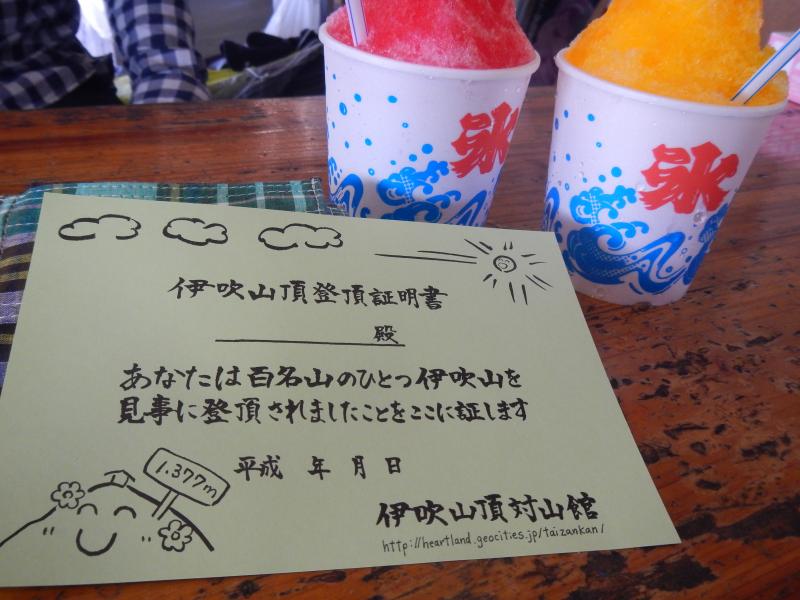 氷
氷
伊吹山頂登頂証明書
殿
あなたは百名山のひとつ伊吹山を
見事に登頂されましたことをここに証します
平成 年 月 日
1.377m
伊吹山頂対山館
http://heartland.geocities.jp/taizankan/